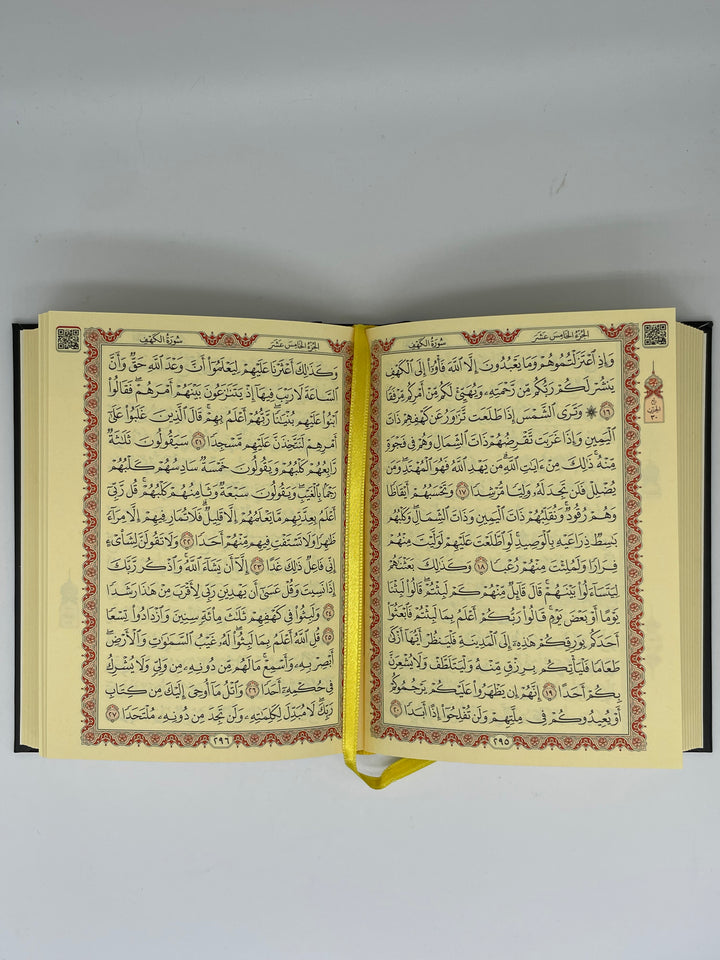 الجزء الخامس عشر
سورة الكهف
وَإِذِ ٱعۡتَزَلۡتُمُوهُمۡ وَمَا يَعۡبُدُونَ إِلَّا ٱللَّهَ فَأۡوُۥٓاْ إِلَى ٱلۡكَهۡفِ
يَنشُرۡ لَكُمۡ رَبُّكُم مِّن رَّحۡمَتِهِۦ وَيُهَيِّئۡ لَكُم مِّنۡ أَمۡرِكُم مِّرۡفَقٗا
١٦ ۞ وَتَرَى ٱلشَّمۡسَ إِذَا طَلَعَت تَّزَٰوَرُ عَن كَهۡفِهِمۡ ذَاتَ
ٱلۡيَمِينِ وَإِذَا غَرَبَت تَّقۡرِضُهُمۡ ذَاتَ ٱلشِّمَالِ وَهُمۡ فِي فَجۡوَةٖ
مِّنۡهُۚ ذَٰلِكَ مِنۡ ءَايَٰتِ ٱللَّهِۗ مَن يَهۡدِ ٱللَّهُ فَهُوَ ٱلۡمُهۡتَدِۖ وَمَن
يُضۡلِلۡ فَلَن تَجِدَ لَهُۥ وَلِيّٗا مُّرۡشِدٗا ١٧ وَتَحۡسَبُهُمۡ أَيۡقَاظٗا
وَهُمۡ رُقُودٞۚ وَنُقَلِّبُهُمۡ ذَاتَ ٱلۡيَمِينِ وَذَاتَ ٱلشِّمَالِۖ وَكَلۡبُهُم
بَٰسِطٞ ذِرَاعَيۡهِ بِٱلۡوَصِيدِۚ لَوِ ٱطَّلَعۡتَ عَلَيۡهِمۡ لَوَلَّيۡتَ مِنۡهُمۡ
فِرَارٗا وَلَمُلِئۡتَ مِنۡهُمۡ رُعۡبٗا ١٨ وَكَذَٰلِكَ بَعَثۡنَٰهُمۡ
لِيَتَسَآءَلُواْ بَيۡنَهُمۡۚ قَالَ قَآئِلٞ مِّنۡهُمۡ كَمۡ لَبِثۡتُمۡۖ قَالُواْ لَبِثۡنَا
يَوۡمًا أَوۡ بَعۡضَ يَوۡمٖۚ قَالُواْ رَبُّكُمۡ أَعۡلَمُ بِمَا لَبِثۡتُمۡ فَٱبۡعَثُوٓاْ
أَحَدَكُم بِوَرِقِكُمۡ هَٰذِهِۦٓ إِلَى ٱلۡمَدِينَةِ فَلۡيَنظُرۡ أَيُّهَآ أَزۡكَىٰ
طَعَامٗا فَلۡيَأۡتِكُم بِرِزۡقٖ مِّنۡهُ وَلۡيَتَلَطَّفۡ وَلَا يُشۡعِرَنَّ
بِكُمۡ أَحَدًا ١٩ إِنَّهُمۡ إِن يَظۡهَرُواْ عَلَيۡكُمۡ يَرۡجُمُوكُمۡ
أَوۡ يُعِيدُوكُمۡ فِي مِلَّتِهِمۡ وَلَن تُفۡلِحُوٓاْ إِذًا أَبَدٗا ٢٠
٢٩٥
الحزب
٣٠
الجزء الخامس عشر
سورة الكهف
وَكَذَٰلِكَ أَعۡثَرۡنَا عَلَيۡهِمۡ لِيَعۡلَمُوٓاْ أَنَّ وَعۡدَ ٱللَّهِ حَقّٞ وَأَنَّ
ٱلسَّاعَةَ لَا رَيۡبَ فِيهَآ إِذۡ يَتَنَٰزَعُونَ بَيۡنَهُمۡ أَمۡرَهُمۡۖ فَقَالُواْ
ٱبۡنُواْ عَلَيۡهِم بُنۡيَٰنٗاۖ رَّبُّهُمۡ أَعۡلَمُ بِهِمۡۚ قَالَ ٱلَّذِينَ غَلَبُواْ عَلَىٰٓ
أَمۡرِهِمۡ لَنَتَّخِذَنَّ عَلَيۡهِم مَّسۡجِدٗا ٢١ سَيَقُولُونَ ثَلَٰثَةٞ
رَّابِعُهُمۡ كَلۡبُهُمۡ وَيَقُولُونَ خَمۡسَةٞ سَادِسُهُمۡ كَلۡبُهُمۡ
رَجۡمَۢا بِٱلۡغَيۡبِۖ وَيَقُولُونَ سَبۡعَةٞ وَثَامِنُهُمۡ كَلۡبُهُمۡۚ قُل رَّبِّيٓ
أَعۡلَمُ بِعِدَّتِهِم مَّا يَعۡلَمُهُمۡ إِلَّا قَلِيلٞۗ فَلَا تُمَارِ فِيهِمۡ إِلَّا مِرَآءٗ
ظَٰهِرٗا وَلَا تَسۡتَفۡتِ فِيهِم مِّنۡهُمۡ أَحَدٗا ٢٢ وَلَا تَقُولَنَّ لِشَاْيۡءٍ
إِنِّي فَاعِلٞ ذَٰلِكَ غَدًا ٢٣ إِلَّآ أَن يَشَآءَ ٱللَّهُۚ وَٱذۡكُر رَّبَّكَ
إِذَا نَسِيتَ وَقُلۡ عَسَىٰٓ أَن يَهۡدِيَنِ رَبِّي لِأَقۡرَبَ مِنۡ هَٰذَا رَشَدٗا
٢٤ وَلَبِثُواْ فِي كَهۡفِهِمۡ ثَلَٰثَ مِاْئَةٖ سِنِينَ وَٱزۡدَادُواْ تِسۡعٗا
٢٥ قُلِ ٱللَّهُ أَعۡلَمُ بِمَا لَبِثُواْۖ لَهُۥ غَيۡبُ ٱلسَّمَٰوَٰتِ وَٱلۡأَرۡضِۖ
أَبۡصِرۡ بِهِۦ وَأَسۡمِعۡۚ مَا لَهُم مِّن دُونِهِۦ مِن وَلِيّٖ وَلَا يُشۡرِكُ
فِي حُكۡمِهِۦٓ أَحَدٗا ٢٦ وَٱتۡلُ مَآ أُوحِيَ إِلَيۡكَ مِن كِتَابِ
رَبِّكَۖ لَا مُبَدِّلَ لِكَلِمَٰتِهِۦ وَلَن تَجِدَ مِن دُونِهِۦ مُلۡتَحَدٗا ٢٧
٢٩٦